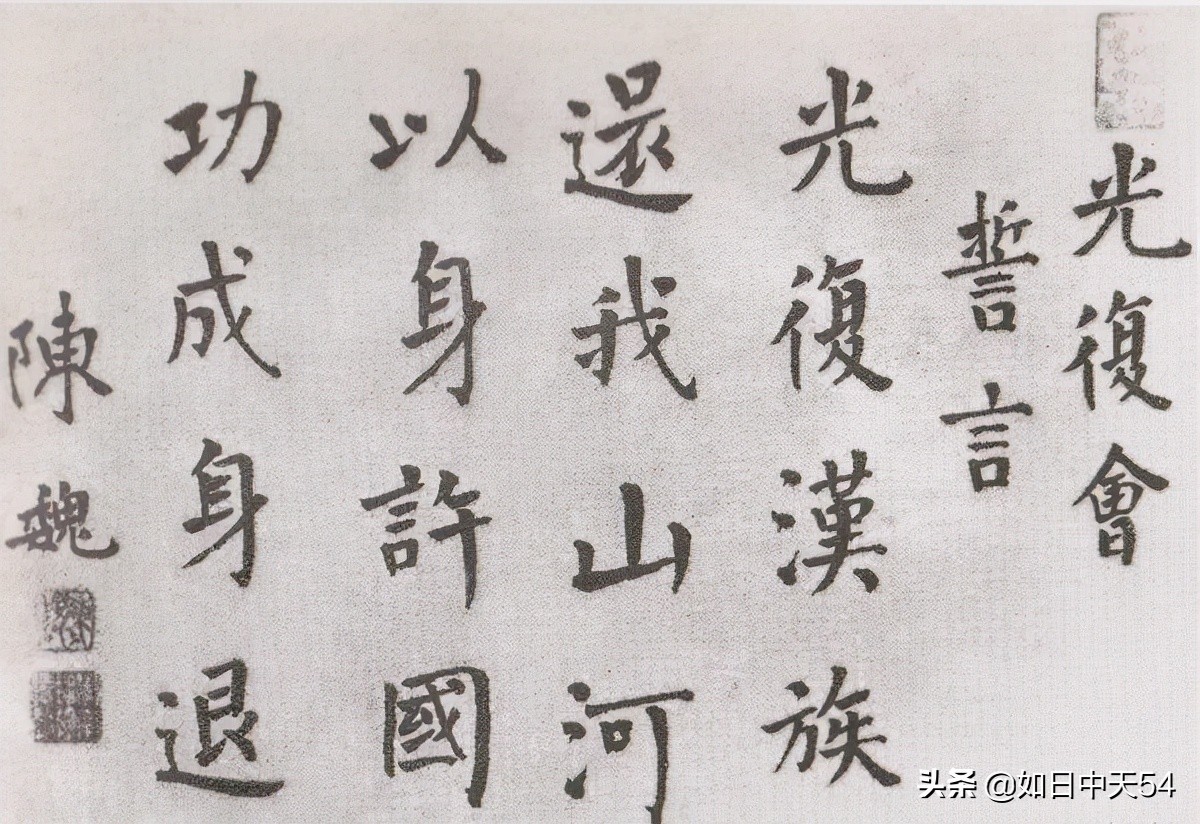 光復會
誓言
光復漢族
還我山河
以身許國
功成身退
陳魏
头条 @如日中天54